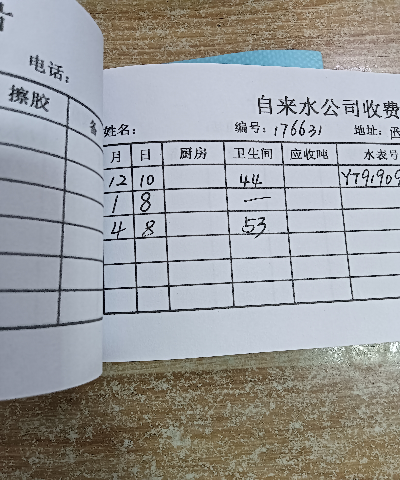 电话：
擦胶
自来水公司收费
姓名： 编号：176631 地址：
月 日 厨房 卫生间 应收吨 水表号
12 10 44 YT91909
1 8 —
4 8 53